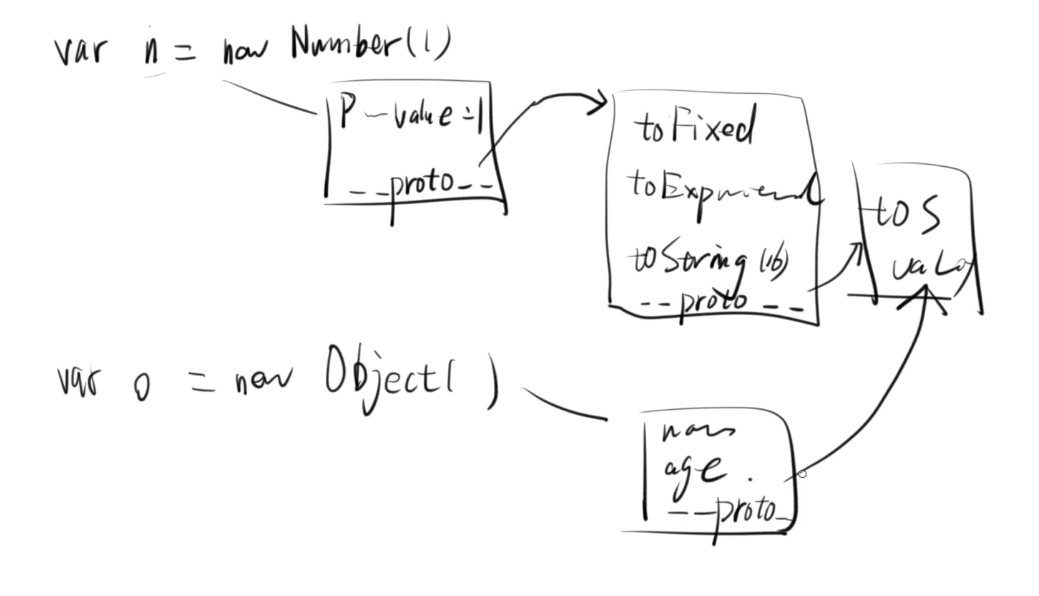 var n = new Number(1)
P-value=1
__proto__
toFixed
toString(16)
__proto__
toS
valo
var o = new Object( )
age.
__proto_